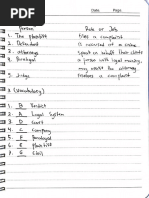 Date Page
Person Role or Job
1. The plaintiff files a complaint
2. Defendant is accused of a crime
3. attorneys speak on behalf their clients
4. Paralegal a person with legal training,
may assist the attorney
5. Judge
B
1. B Verdict
2. A Legal System
3. D Court
4. C Company
5. F Paralegal
6. E Plaintiff
7. G Civil